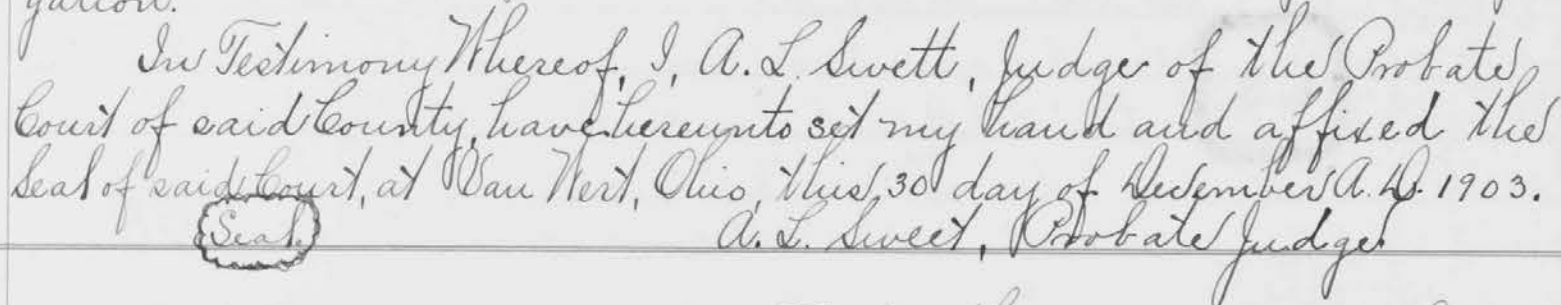 gation.
In Testimony Whereof, I, A. L. Swett, Judge of the Probate
Court of said County, have hereunto set my hand and affixed the
Seal of said Court, at Van Wert, Ohio, this 30 day of December A. D. 1903.
Seal. A. L. Sweet, Probate Judge